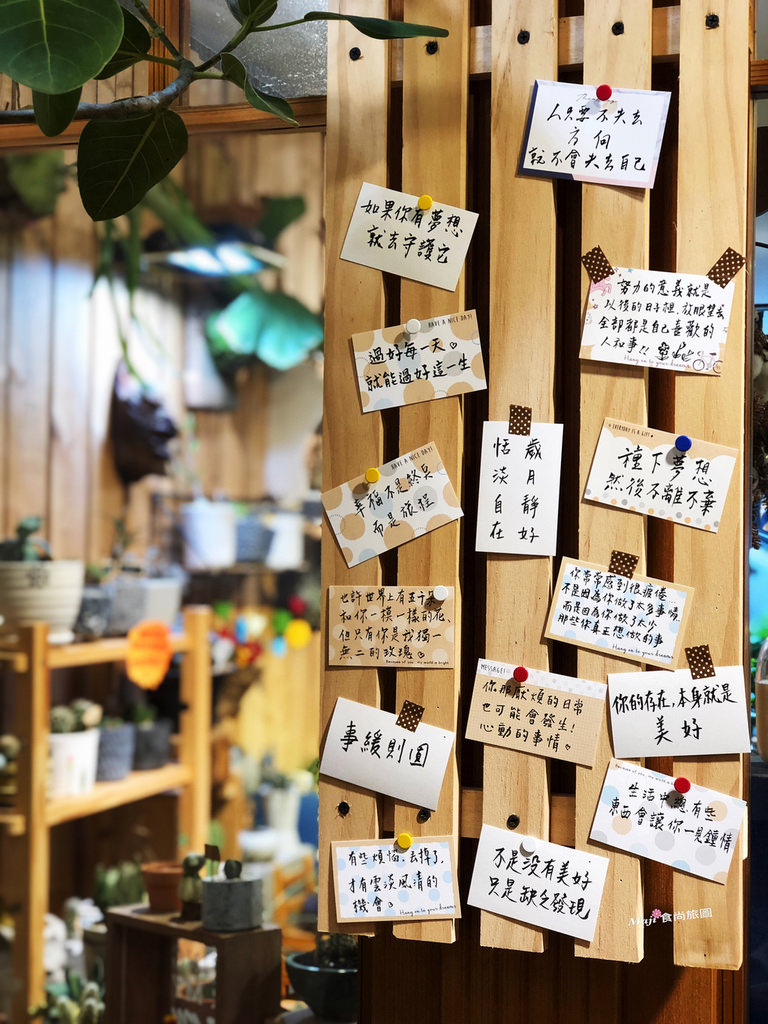 人只要不失去
方向
就不會失去自己
如果你有夢想
就去守護它
努力的意義就是
以後的日子裡,放眼望去
全部都是自己喜歡的
人和事!!
Hang on to your dreams
HAVE A NICE DAY!
過好每一天
就能過好這一生
EVERYDAY IS A GIFT
種下夢想
然後不離不棄
歲月靜好
恬淡自在
HAVE A NICE DAY!
幸福不是終點
而是旅程
你常常感到很疲倦
不是因為你做了太多事情,
而是因為你做了太少
那些你真正想做的事
Hang on to your dreams
也許世界上有五千朵
和你一模一樣的花,
但只有你是我獨一
無二的玫瑰
Because of you, my world is bright
MESSAGE!
你那厭煩的日常
也可能會發生!
心動的事情。
你的存在,本身就是
美好
事緩則圓
Because of you, my world is
生活中總有些
東西會讓你一見鍾情
有些煩惱,丟掉了,
才有雲淡風清的
機會。
Hang on to your dreams
不是沒有美好
只是缺乏發現
Maji 食尚旅圖